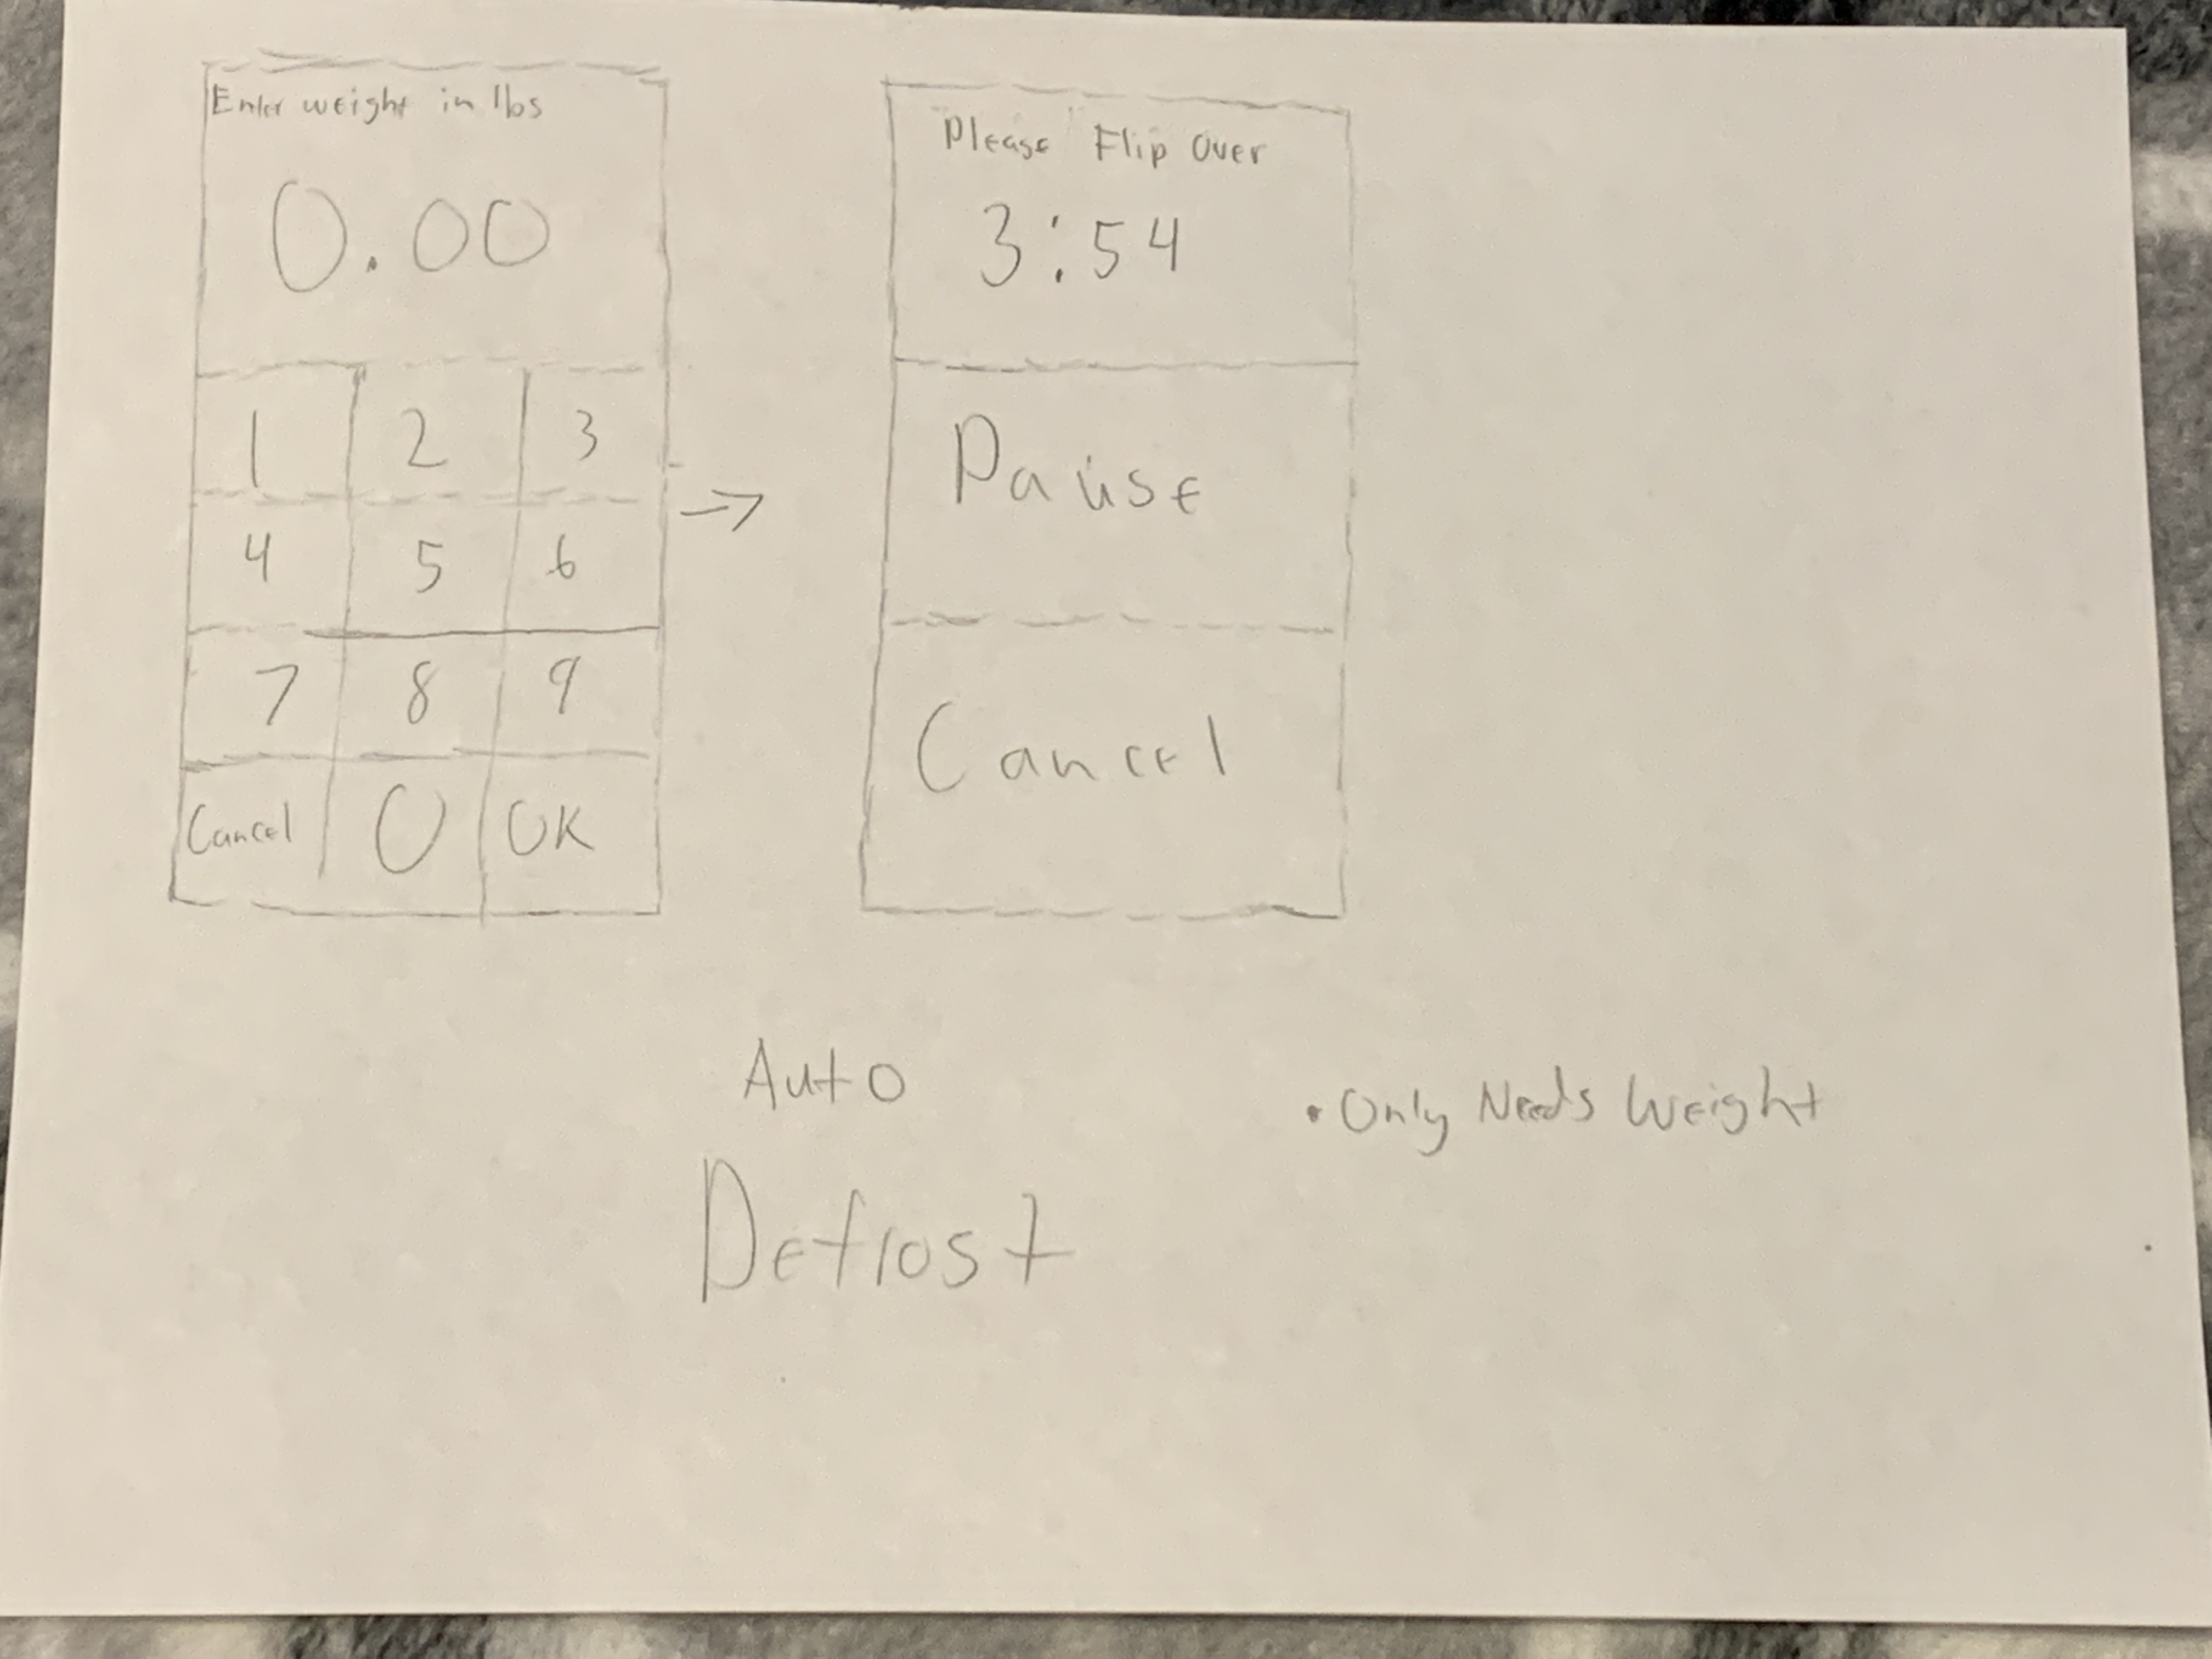 Enter weight in lbs
0.00
1 2 3
4 5 6
7 8 9
Cancel 0 OK
→
Please Flip Over
3:54
Pause
Cancel
Auto
Defrost
• Only Needs Weight